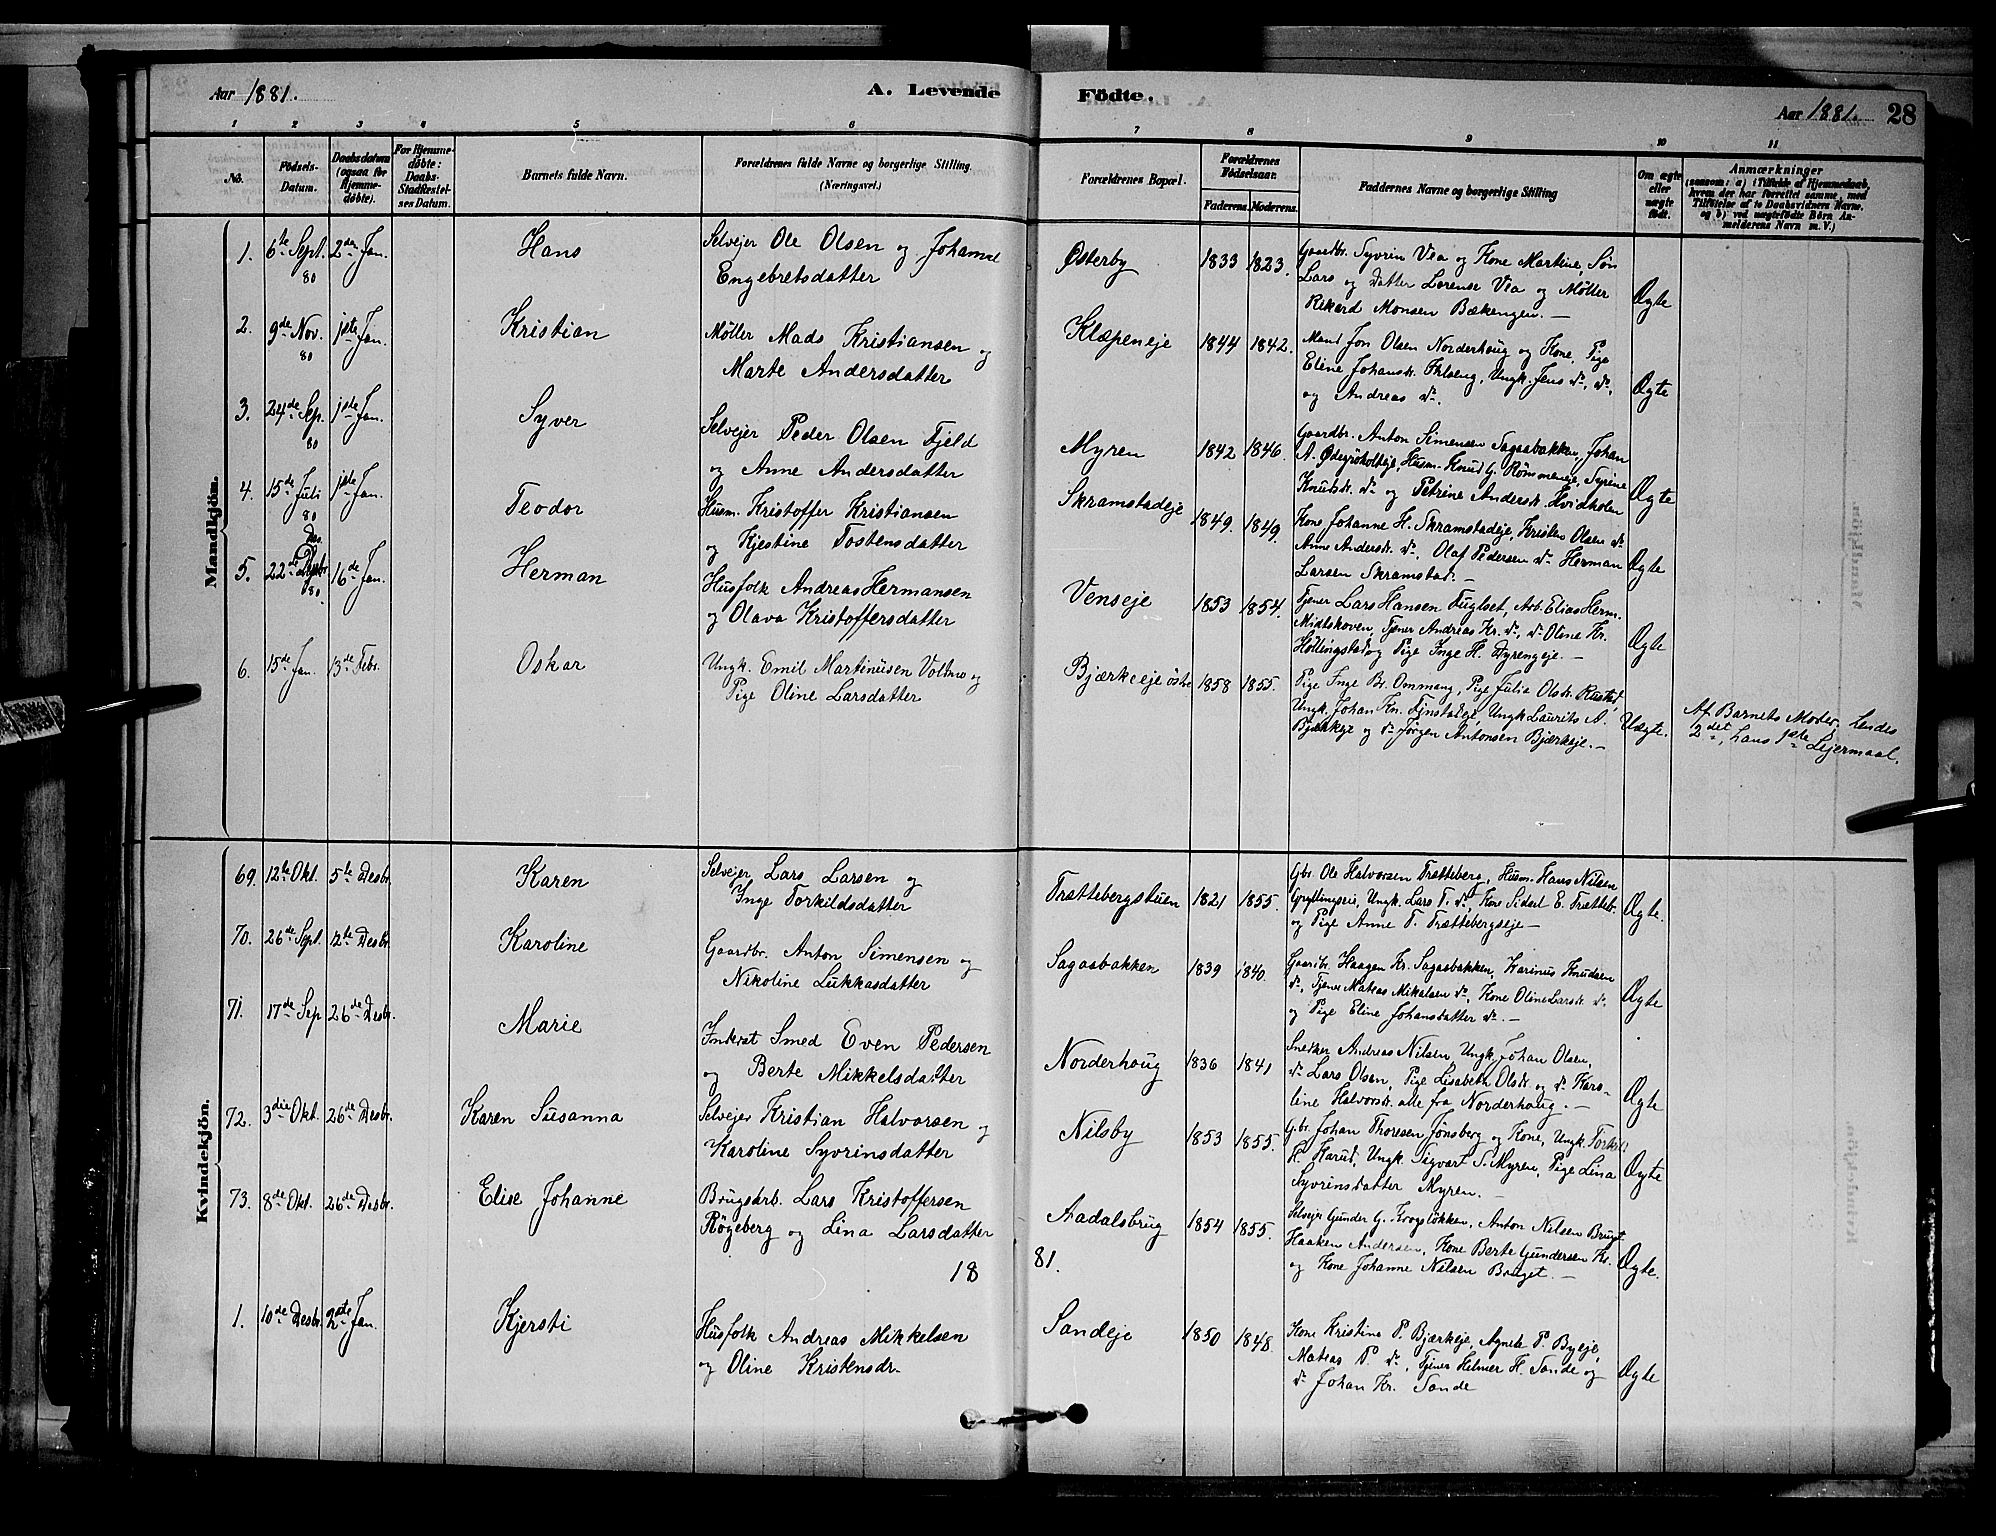 Aar 1881.
A. Levende
Födte.
Aar 1881.
28
1 2 3 4 5 6 7 8 9 10 11
No.
Födsels-Datum.
Daabsdatum (ogsaa for Hjemme-døbte).
For Hjemme-døbte: Daabs-Stadfæstel-ses Datum.
Barnets fulde Navn.
Forældrenes fulde Navne og borgerlige Stilling.
(Næringsvei.)
Forældrenes Bopæl.
Forældrenes Födselsaar.
Faderens. Moderens.
Faddernes Navne og borgerlige Stilling
Om ægte eller uægte født.
Anmærkninger
(saasom: a) i Tilfælde af Hjemmedaab,
hvem der har forrettet samme, med
Tilföielse af to Daabsvidners Navne.
og b) ved uægtefödte Börn An-
melderens Navn m. V.)
Mandkjön.
1. 6te Sept. 80 2den Jan. Hans
Selvejer Ole Olsen og Johanne
Engebretsdatter
Østerby 1833 1823.
Gaardbr. Syvrin Vea og Kone Martine, Søn
Lars og Datter Lorense Vea og Møller
Rikard Monsen Bækengen. — Ægte
2. 9de Nov. 80 1ste Jan. Kristian
Møller Mads Kristiansen og
Marte Andersdatter
Klæpeneje 1844 1842.
Mand Jon Olsen Norderhoug og Kone, Pige
Eline Johansdr. Ihlseng, Ungk. Jens do, do,
og Andreas do. Ægte
3. 24de Sep. 80 1ste Jan. Syver
Selvejer Peder Olsen Fjeld
og Anne Andersdatter
Myren 1842 1846.
Gaardbr. Anton Simensen Sagaabakken, Johan
A. Husm. Knud G. Rømmeneje, Syrine
Knutsdr. do og Petrine Andersdr. Hvidholen Ægte
4. 15de Juli 80 1ste Jan. Teodor
Husm. Kristoffer Kristiansen
og Kjestine Tostensdatter
Skramstadeje 1849. 1849.
Kone Johanne H. Skramstadeje, Kristen Olsen do
Anne Andersdr. do, Olaf Pedersen do Herman
Larsen Skramstad. — Ægte
5. 22de Des 80. 16de Jan. Herman
Husfolk Andreas Hermansen
og Olava Kristoffersdatter
Venseje 1853 1854.
Tjener Lars Hansen Fuglset, Arb. Elias Herm.
Midtskoven, Tjener Andreas Kr. do, do Oline Kr.
og Pige Inge H. Dyrengeje. — Ægte
6. 15de Jan. 13de Febr. Oskar
Ungk. Emil Martinusen og
Pige Oline Larsdatter
Bjærkeeje østre 1858 1855.
Pige Inge Br. Ommang, Pige Julie Olsdr. Rustad,
Ungk. Johan Kn. Ungk Laurits A.
Bjærkeje og do Jørgen Antonsen Bjærkeje. — Uægte.
Af Barnets Moder, hendes
2det, hans 1ste Lejermaal.
Kvindekjön.
69. 12te Okt. 5te Desbr. Karen
Selvejer Lars Larsen og
Inge Torkildsdatter
Trættebergstuen 1821 1855.
Gbr. Ole Halvorsen Trætteberg, Husm. Hans Nilsen
Ungk. Lars T. do Kone Sidsel E. Trætteb.
og Pige Anne T. Trættebergseje — Ægte.
70. 26de Sept. 12te Desbr. Karoline
Gaardbr. Anton Simensen og
Nikoline Lukkasdatter
Sagaabakken 1839 1840.
Gaardbr. Haagen Kr. Sagaabakken, Karinus Knudsen
do, Tjener Mateas Mikalsen do, Kone Oline Larsdr. do
og Pige Eline Johansdatter do. — Ægte
71. 17de Sep 26de Desbr. Marie
Inderst Smed Even Pedersen
og Berte Mikkelsdatter
Norderhoug 1836 1841
Snedker Andreas Nilsen, Ungk. Johan Olsen,
do Lars Olsen, Pige Lisabeth Olsdr. og do Karo-
line Halvorsdr. alle fra Norderhoug. — Ægte
72. 3die Okt. 26de Desbr. Karen Susanna
Selvejer Kristian Halvorsen og
Karoline Syvrinsdatter
Nilsby 1853 1855.
G.br. Johan Thoresen Jønsberg og Kone, Ungk. Torkil
H. Harud, Ungk. Sigvart S. Myren, Pige Lina
Syvrinsdatter Myren. — Ægte
73. 8de Okt. 26de Desbr. Elise Johanne
Brugsarb. Lars Kristoffersen
Røgeberg og Lina Larsdatter
Aadalsbrug 1854 1855.
Selvejer Gunder G. Krogsløkken, Anton Nilsen Bruget
Haaken Andersen, Kone Berte Gundersen Kr.
og Kone Johanne Nilsen Bruget. — Ægte.
18 81.
1. 10de Desbr. 2den Jan. Kjersti
Husfolk Andreas Mikkelsen
og Oline Kristensdr.
Sandeje 1850 1848.
Kone Kristine P. Bjærkeje, Agnete P. Byeje,
Mateas P. do, Tjener Helmer H. Sande og
do Johan Kr. Sande Ægte